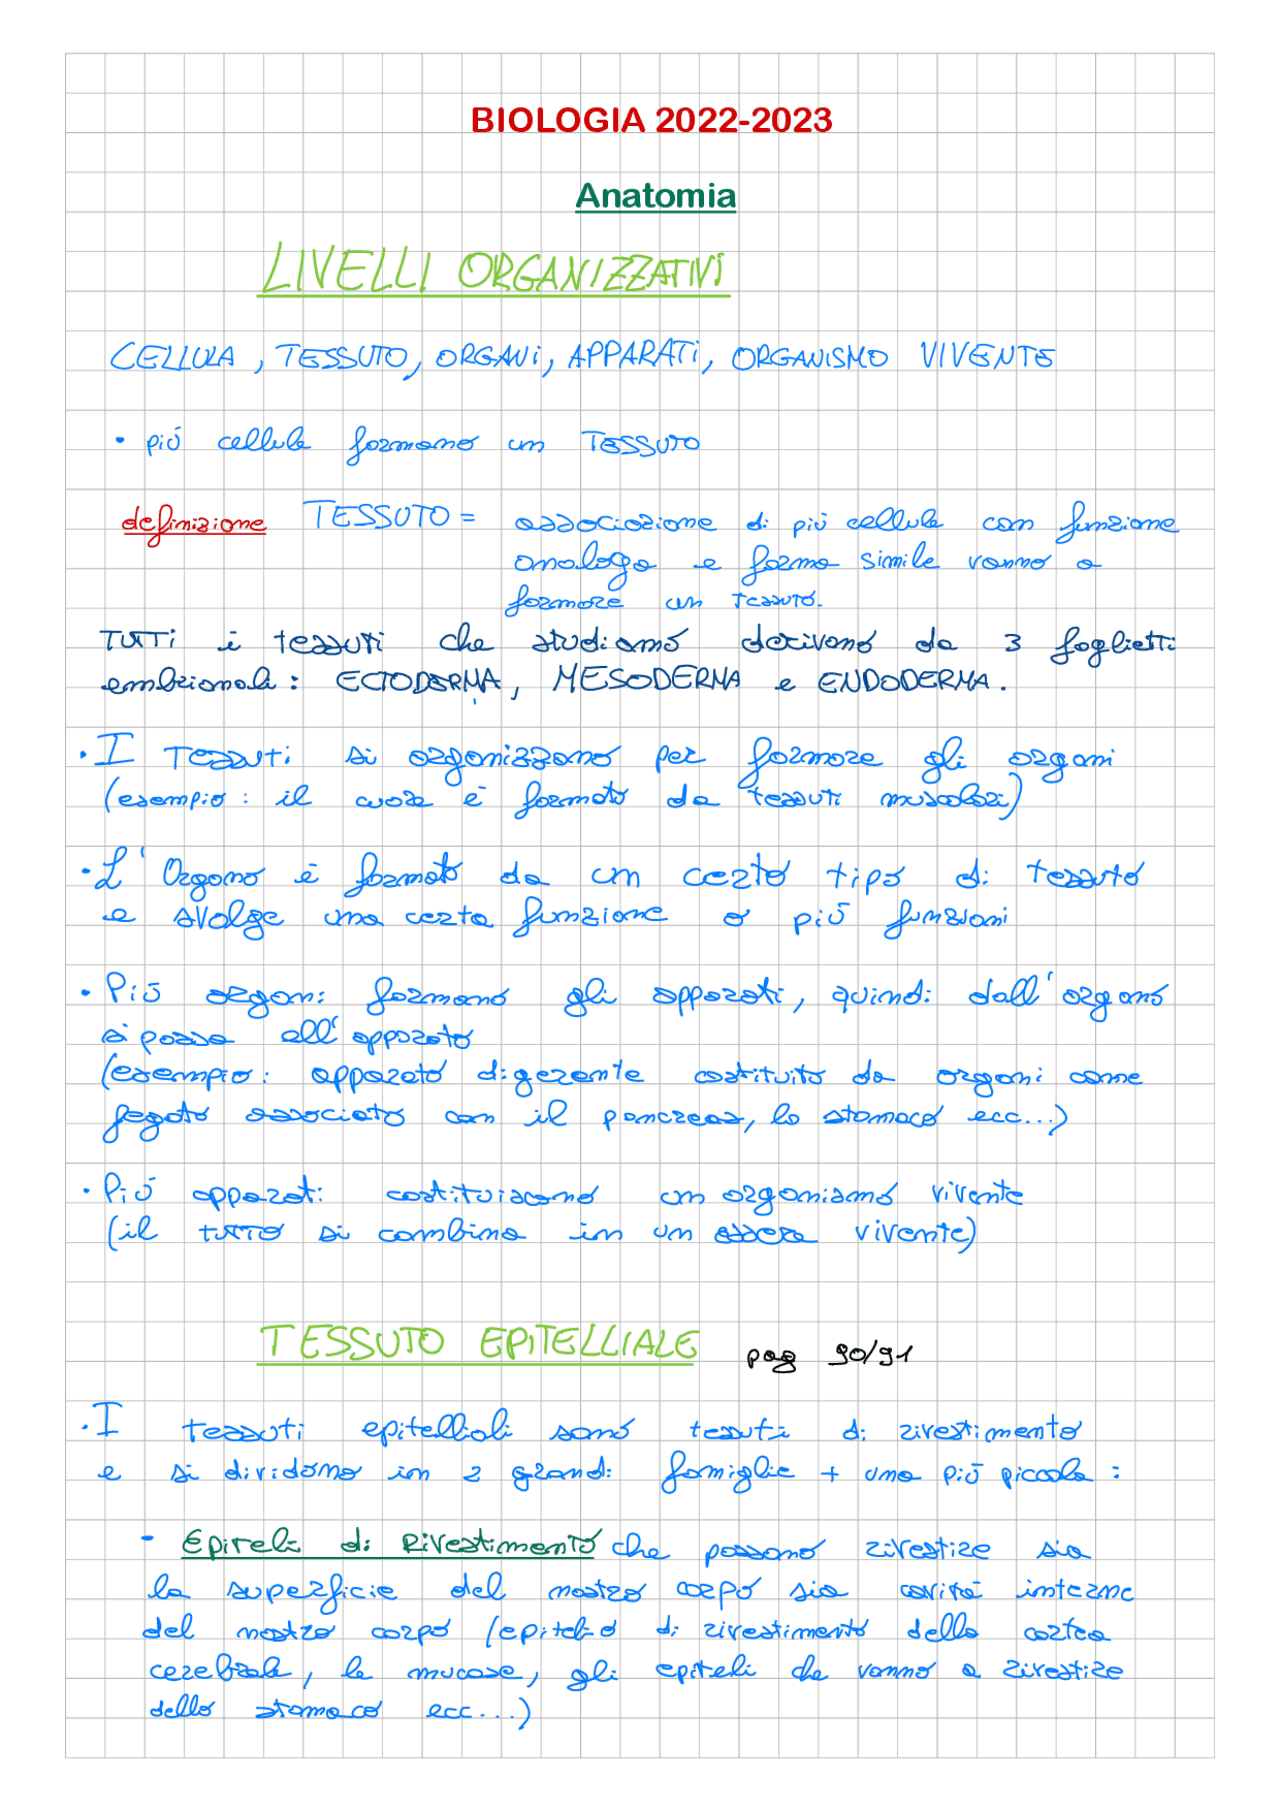 BIOLOGIA 2022-2023
Anatomia
LIVELLI ORGANIZZATIVI
CELLULA, TESSUTO, ORGANi, APPARATi, ORGANISMO VIVENTE
• più cellule formano un TESSUTO
definizione TESSUTO = associazione di più cellule con funzione
analoga e forma simile vanno a
formare un tessuto.
TUTTi i tessuti che studiamo derivano da 3 foglietti
embrionali: ECTODERMA, MESODERMA e ENDODERMA.
• I Tessuti si organizzano per formare gli organi
(esempio: il cuore è formato da tessuti muscolari)
• L'Organo è formato da un certo tipo di tessuto
e svolge una certa funzione o più funzioni
• Più organi formano gli apparati, quindi dall'organo
si passa all'apparato
(esempio: apparato digerente costituito da organi come
fegato associato con il pancreas, lo stomaco ecc...)
• Più apparati costituiscono un organismo vivente
(il tutto si combina in un essere vivente)
TESSUTO EPITELLIALE pag 90/91
• I tessuti epitelliali sono tessuti di rivestimento
e si dividono in 2 grandi famiglie + una più piccola:
- Epiteli di Rivestimento che possono rivestire sia
la superficie del nostro corpo sia cavità interne
del nostro corpo (epitelio di rivestimento della cortea
cerebrale, le mucose, gli epiteli che vanno a rivestire
dello stomaco ecc...)